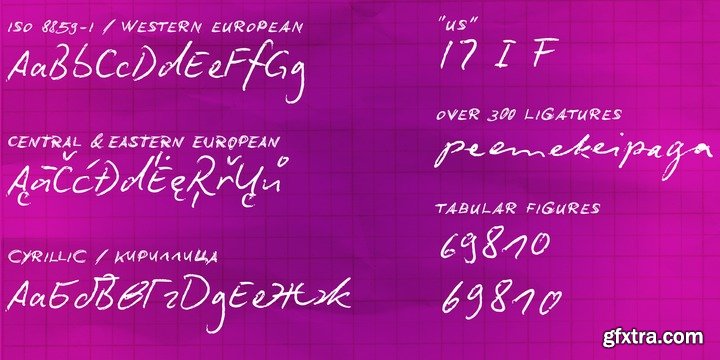 ISO 8859-1 / WESTERN EUROPEAN
AaBbCcDdEeFfGg
CENTRAL & EASTERN EUROPEAN
ĄāČćĐdĖęŖřŲů
CYRILLIC / КИРИЛЛИЦА
АаБбВвГгDgЕеЖж
"US"
17 I F
OVER 300 LIGATURES
peemekeipaga
TABULAR FIGURES
69810
69810
gfxtra.com